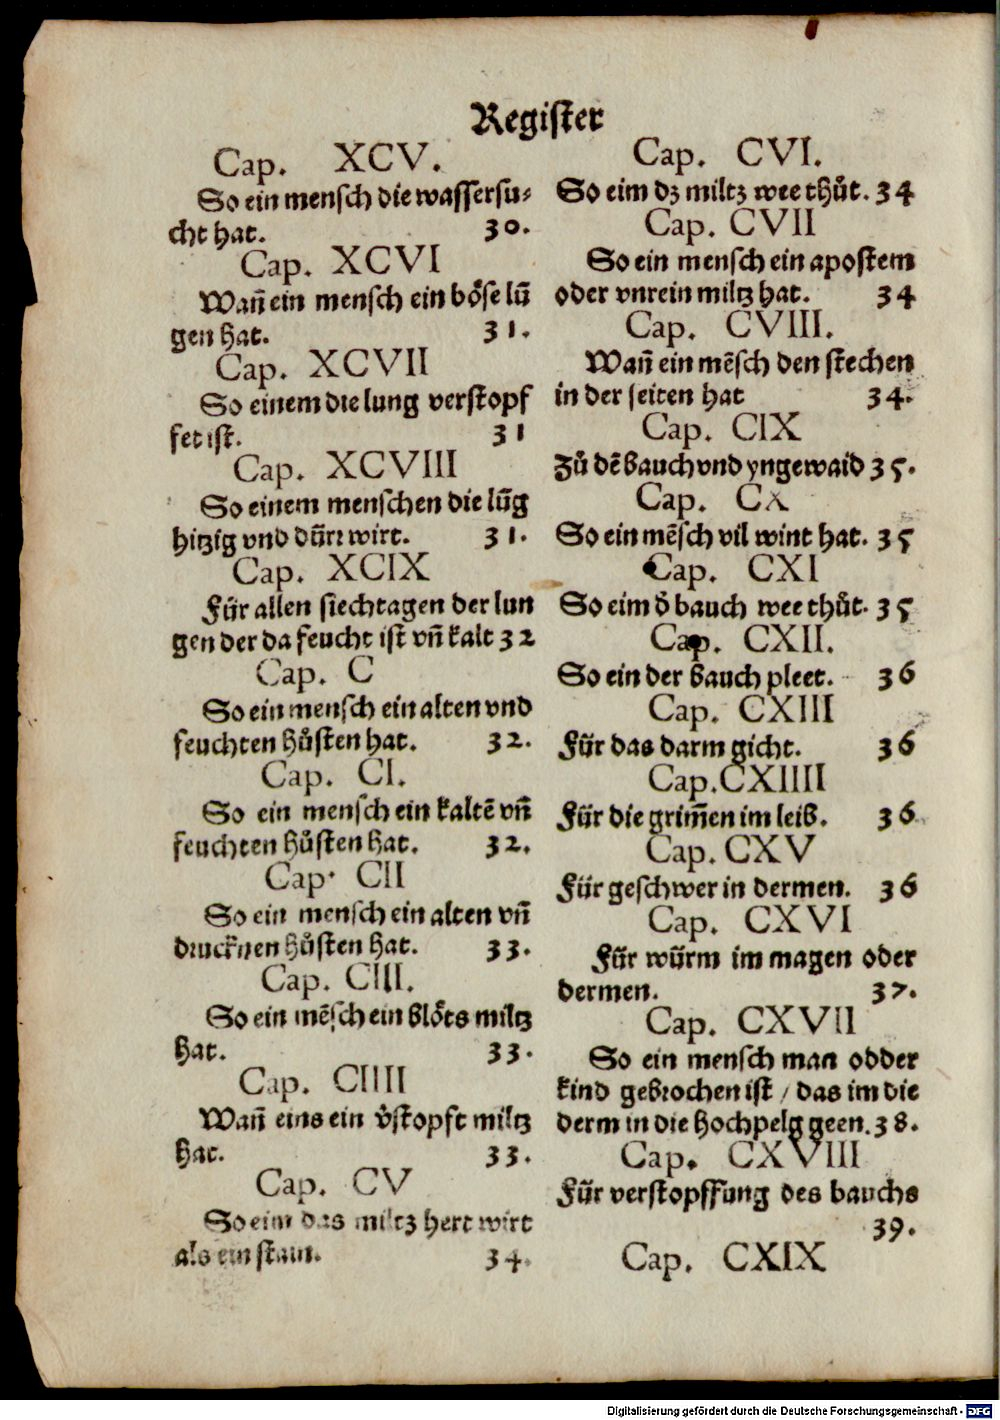 Register
Cap. XCV.
So ein mensch die wassersu⸗
cht hat. 30.
Cap. XCVI
Wañ ein mensch ein boͤse lū
gen hat. 31.
Cap. XCVII
So einem die lung verstopf
fet ist. 31
Cap. XCVIII
So einem menschen die lūg
hitzig vnd dürr wirt. 31.
Cap. XCIX
Für allen siechtagen der lun
gen der da feucht ist vñ kalt 32
Cap. C
So ein mensch ein alten vnd
feuchten huͦsten hat. 32.
Cap. CI.
So ein mensch ein kaltē vñ
feuchten huͦsten hat. 32.
Cap. CII
So ein mensch ein alten vñ
drucknen huͦsten hat. 33.
Cap. CIII.
So ein mēsch ein bloͤts miltz
hat. 33.
Cap. CIIII
Wañ eins ein v̓stopft miltz
hat. 33.
Cap. CV
So eim das miltz hert wirt
als ein stain. 34.
Cap. CVI.
So eim dz miltz wee thuͦt. 34
Cap. CVII
So ein mensch ein apostem
oder vnrein miltz hat. 34
Cap. CVIII.
Wañ ein mēsch den stechen
in der seiten hat 34.
Cap. CIX
Zuͦ dē bauch vnd yngewaid 35.
Cap. CX
So ein mēsch vil wint hat. 35
Cap. CXI
So eim d̓ bauch wee thuͦt. 35
Cap. CXII.
So ein der bauch pleet. 36
Cap. CXIII
Für das darm gicht. 36
Cap. CXIIII
Für die grim̄en im leib. 36
Cap. CXV
Für geschwer in dermen. 36
Cap. CXVI
Für würm im magen oder
dermen. 37.
Cap. CXVII
So ein mensch man odder
kind gebrochen ist / das im die
derm in die hochpelg geen. 38.
Cap. CXVIII
Für verstopffung des bauchs
39.
Cap. CXIX
Digitalisierung gefördert durch die Deutsche Forschungsgemeinschaft - DFG